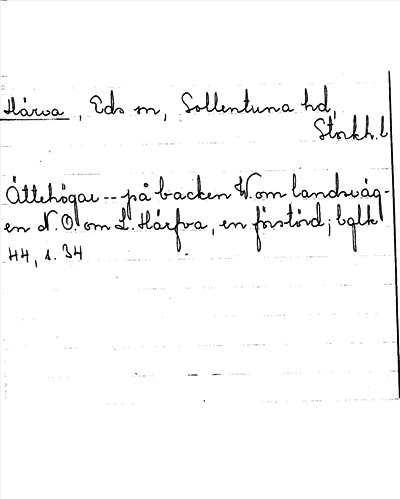 Hårva, Eds sn, Sollentuna hd,
Stockh.l
Ättehögar -- på backen W. om landsväg-
en N.O. om L. Hårfva, en förstörd; bglk
44, s. 34